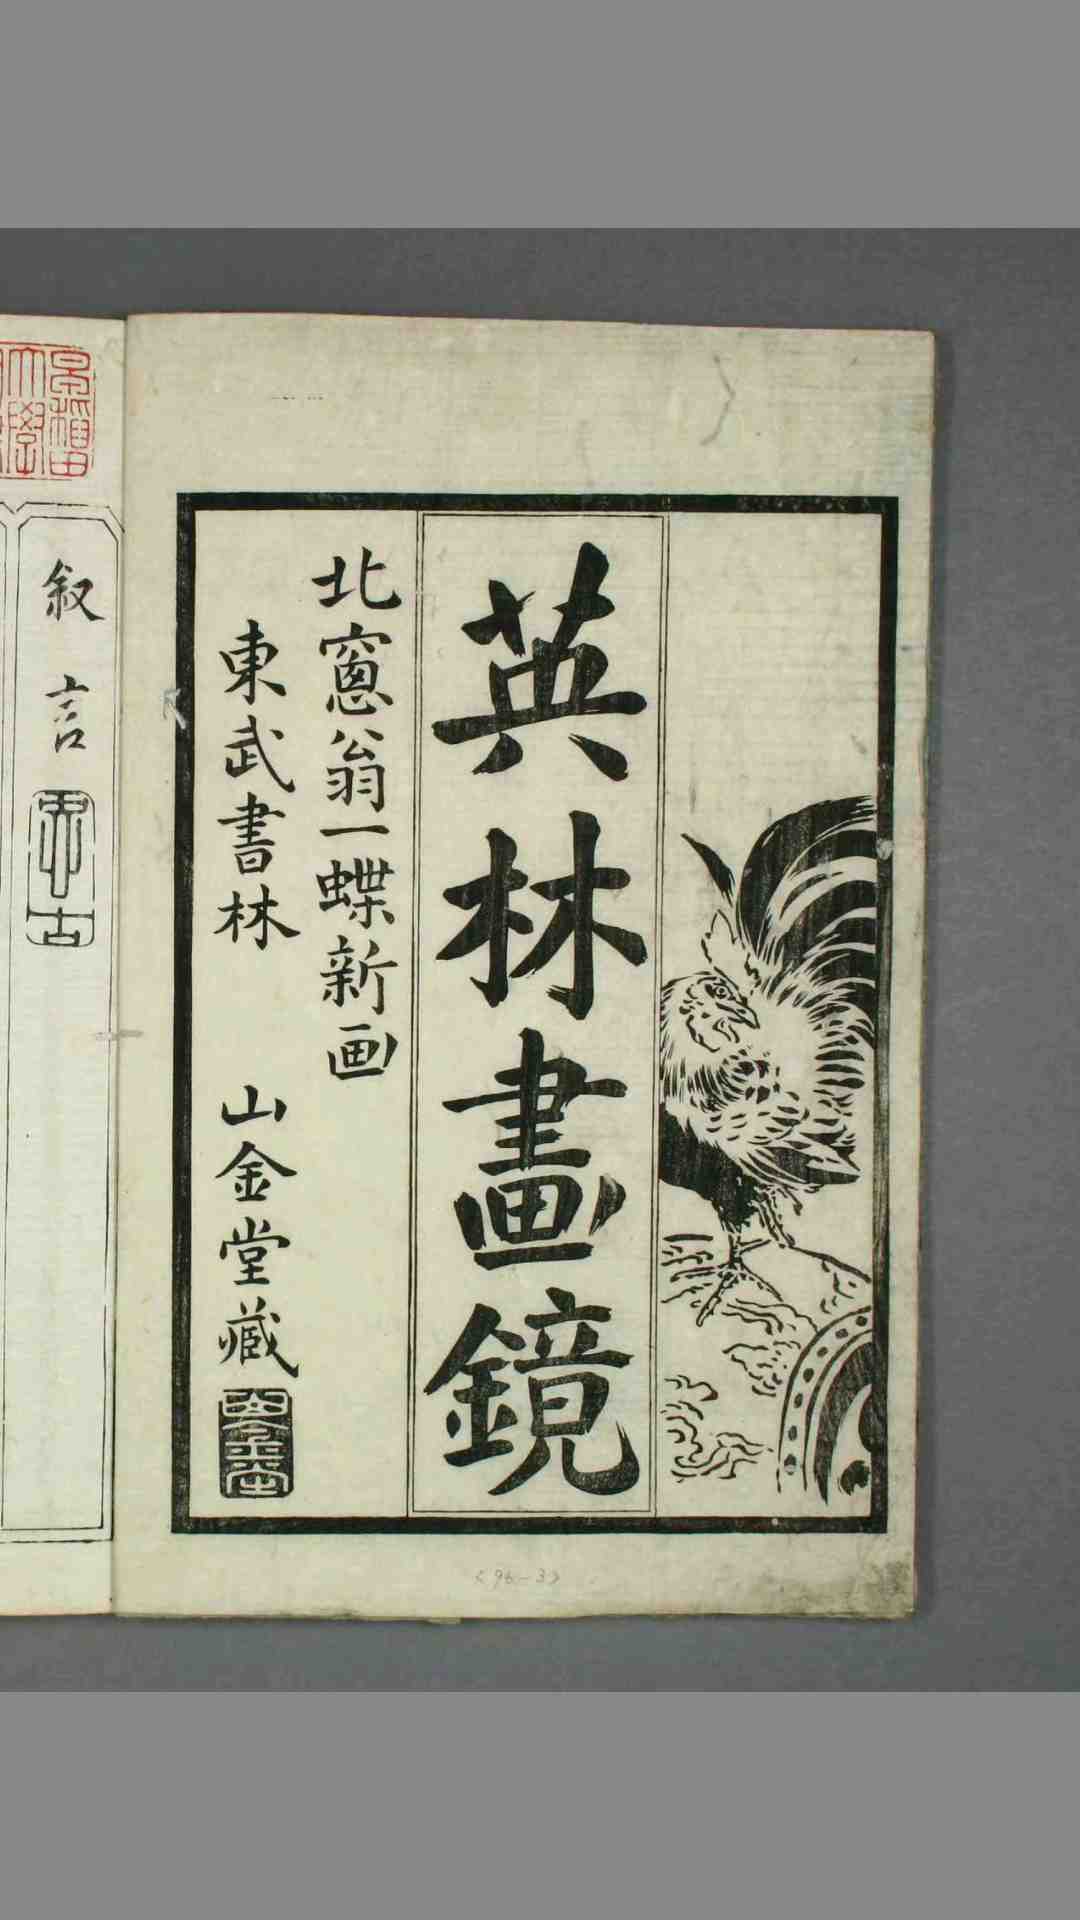 英林畫鏡
北窻翁一蝶新画
東武書林 山金堂藏
山金堂
叙言
思古
<96-3>